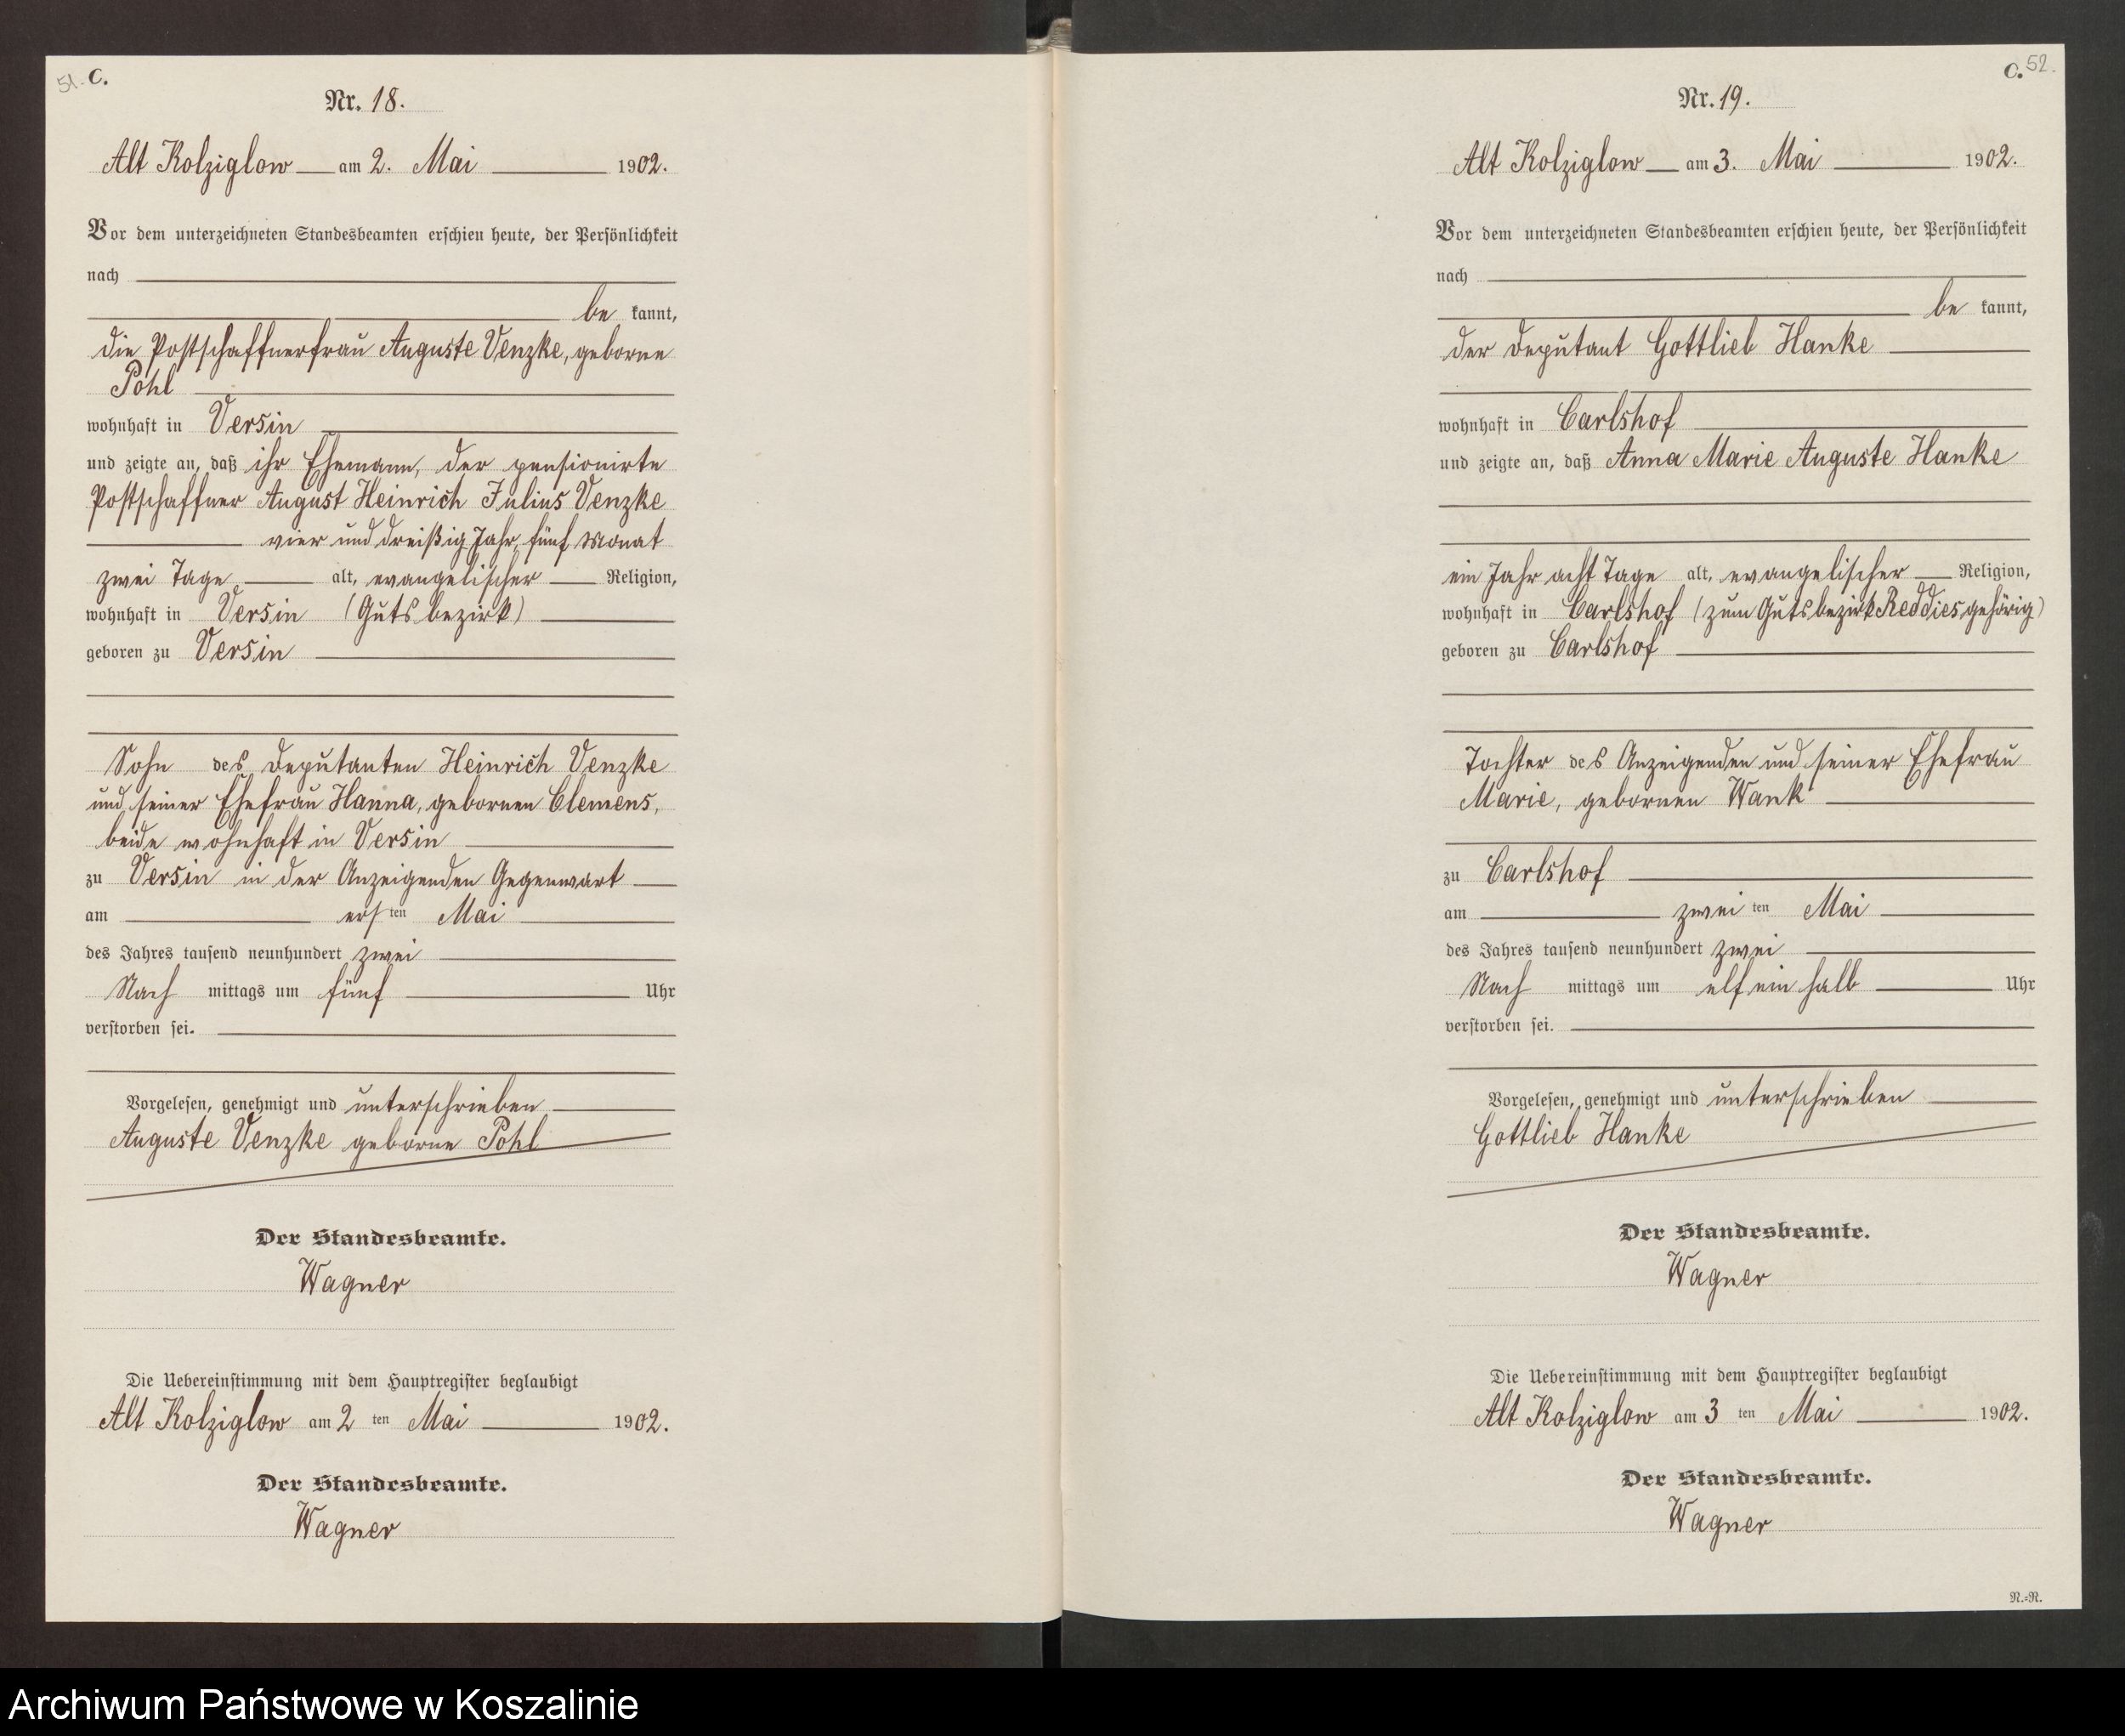 51. C.
Nr. 18.
Alt Kolziglow am 2. Mai 1902.
Vor dem unterzeichneten Standesbeamten erschien heute, der Persönlichkeit
nach
be kannt,
die Postschaffnerfrau Auguste Venzke, geborne
Pohl
wohnhaft in Versin
und zeigte an, daß ihr Ehemann, der pensionirte
Postschaffner August Heinrich Julius Venzke
vier und dreißig Jahr, fünf Monat
zwei Tage alt, evangelischer Religion,
wohnhaft in Versin (Gutsbezirk)
geboren zu Versin
Sohn des Deputanten Heinrich Venzke
und seiner Ehefrau Hanna, gebornen Clemens,
beide wohnhaft in Versin
zu Versin in der Anzeigenden Gegenwart
am ersten Mai
des Jahres tausend neunhundert zwei
Nach mittags um fünf Uhr
verstorben sei.
Vorgelesen, genehmigt und unterschrieben
Auguste Venzke geborne Pohl
Der Standesbeamte.
Wagner
Die Uebereinstimmung mit dem Hauptregister beglaubigt
Alt Kolziglow am 2 ten Mai 1902.
Der Standesbeamte.
Wagner
C. 52.
Nr. 19.
Alt Kolziglow am 3. Mai 1902.
Vor dem unterzeichneten Standesbeamten erschien heute, der Persönlichkeit
nach
be kannt,
der Deputant Gottlieb Hanke
wohnhaft in Carlshof
und zeigte an, daß Anna Marie Auguste Hanke
ein Jahr acht Tage alt, evangelischer Religion,
wohnhaft in Carlshof (zum Gutsbezirk Reddies gehörig)
geboren zu Carlshof
Tochter des Anzeigenden und seiner Ehefrau
Marie, gebornen Wank
zu Carlshof
am zwei ten Mai
des Jahres tausend neunhundert zwei
Nach mittags um elf ein halb Uhr
verstorben sei.
Vorgelesen, genehmigt und unterschrieben
Gottlieb Hanke
Der Standesbeamte.
Wagner
Die Uebereinstimmung mit dem Hauptregister beglaubigt
Alt Kolziglow am 3 ten Mai 1902.
Der Standesbeamte.
Wagner
N.=N.
Archiwum Państwowe w Koszalinie